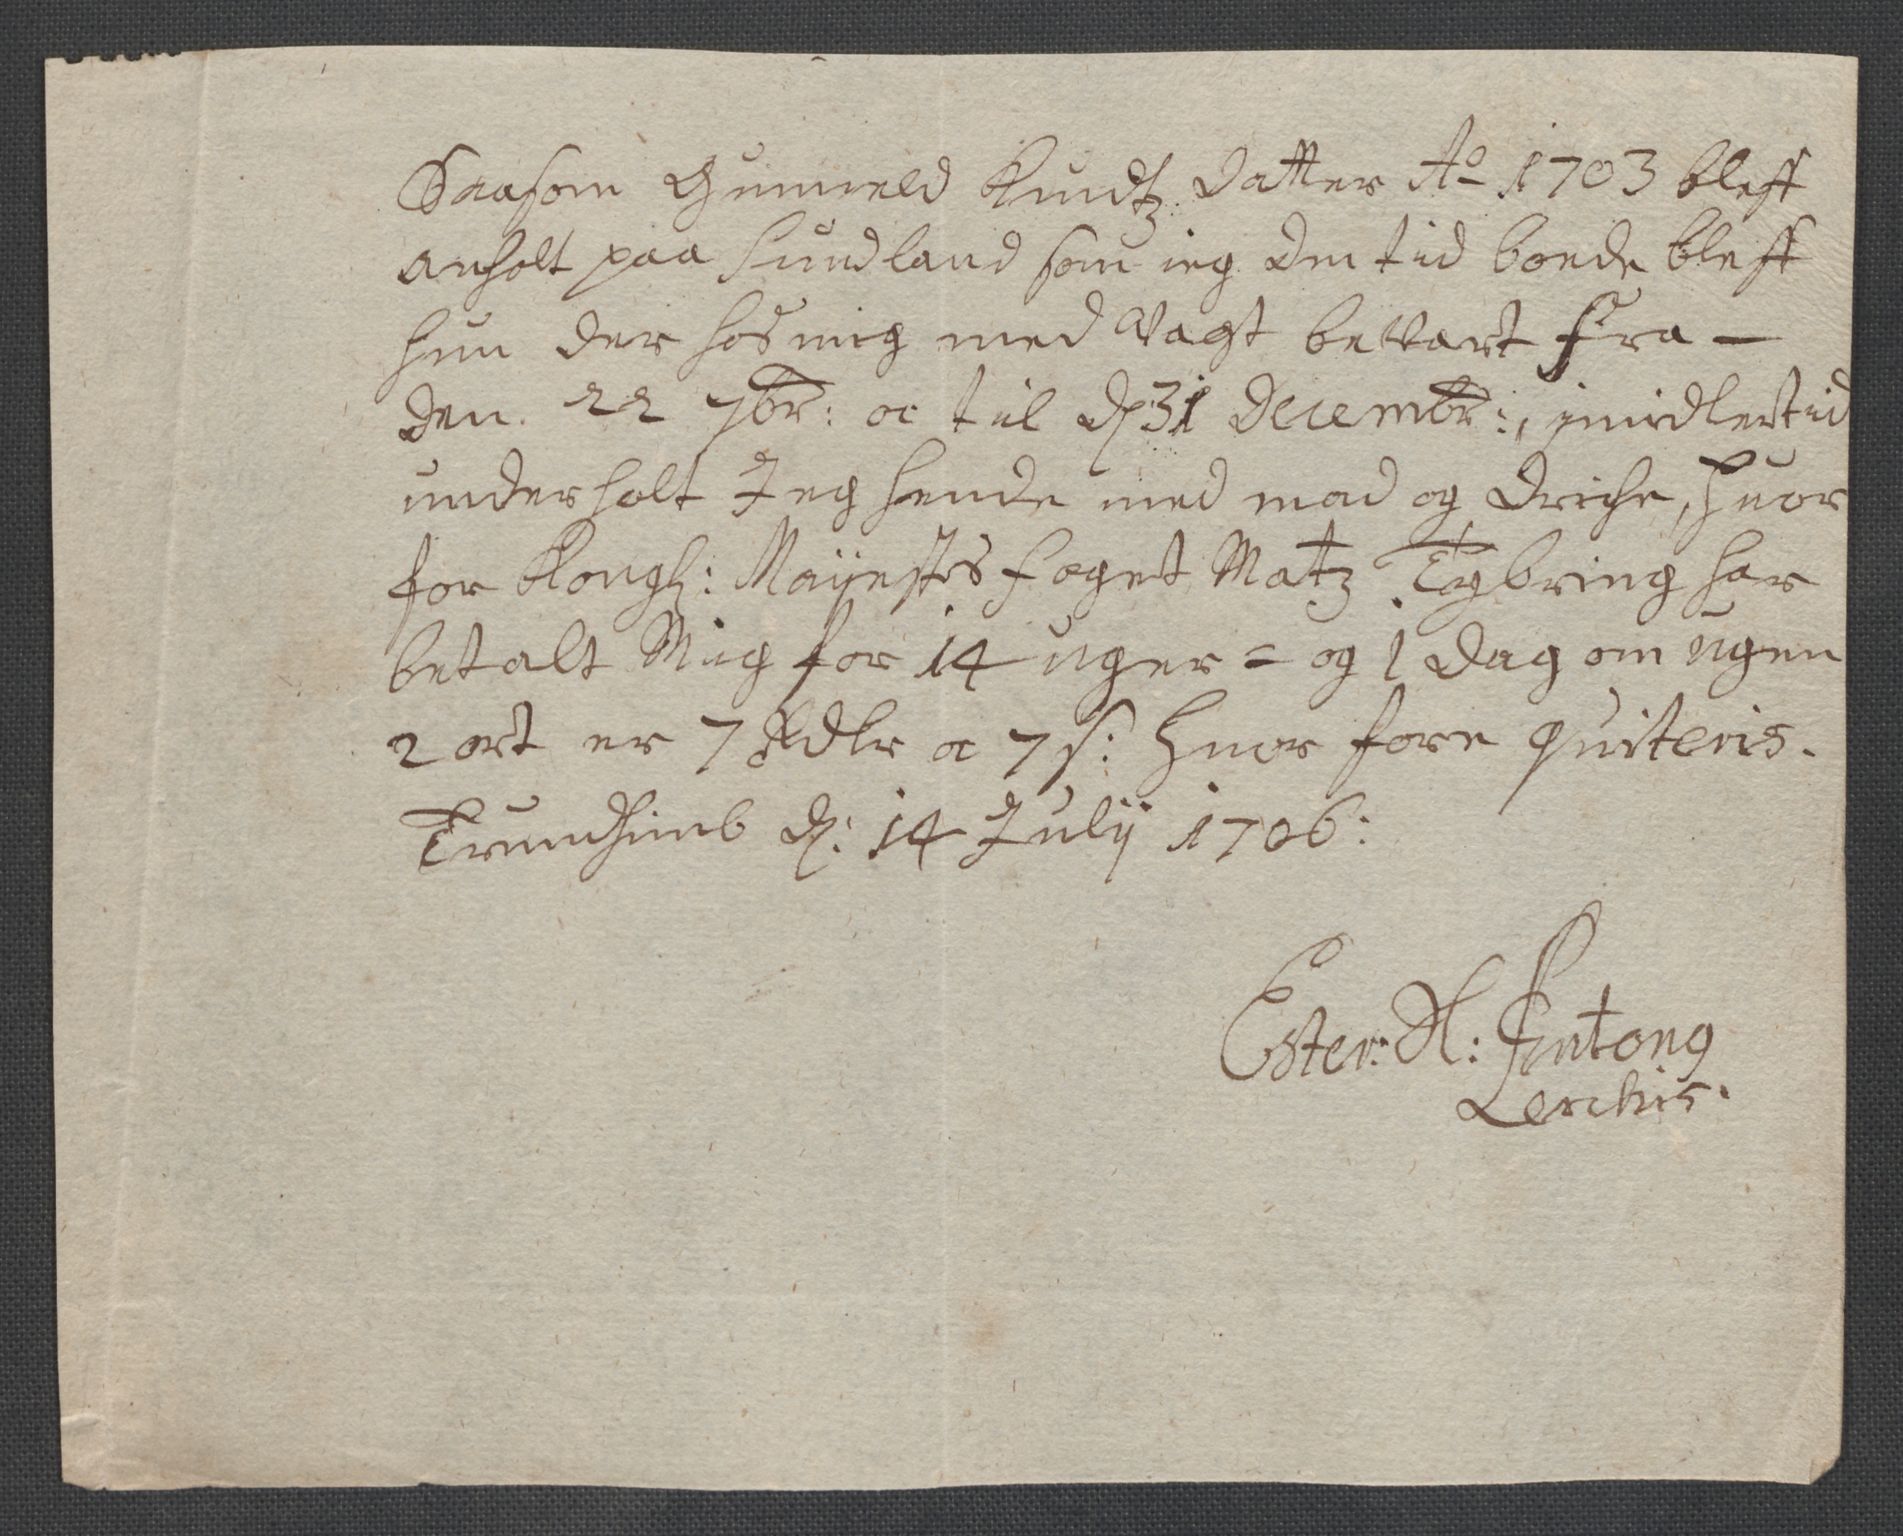 Saasom Gunneld Knudtz Datter Ao 1703 bleff
anholt paa Sundland som ieg den tid boede bleff
hun der hos mig med Vagt bevart fra —
den. 22 7br: oc til d 31 Decembr:, imidlertid
underholt Jeg hende med mad og driche, huor
for Kongl: Mayiestes foget Matz Egbring har
betalt Mig for 14 uger = og 1 Dag om ugen
2 ort er 7 Rdlr oc 7 s: huor fore quiteris.
Trundhimb d: 14 Julij 1706:
Ester: Sl: Jintong
Lerchis.